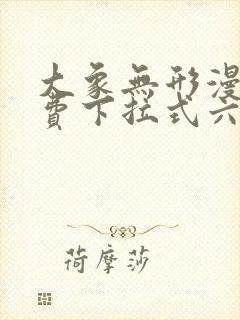 大象無形漫
費下拉式六
荷摩莎